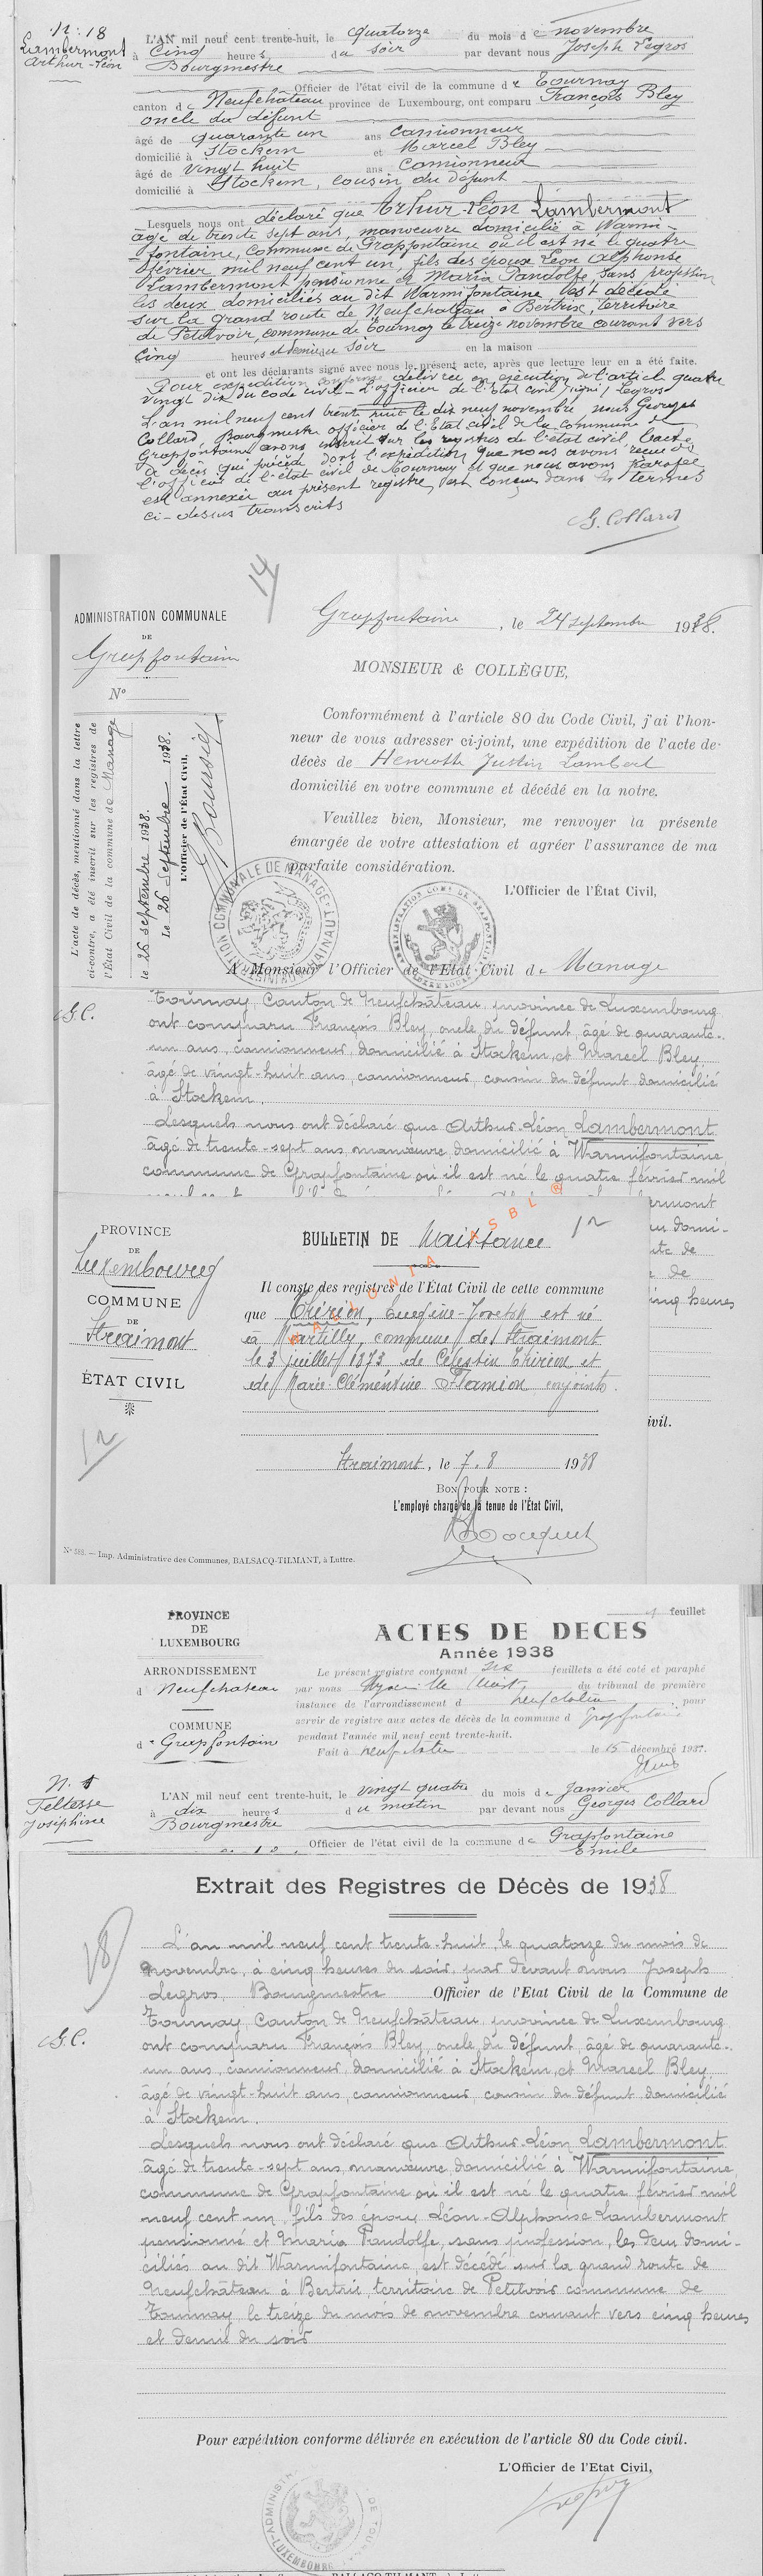 N: 18
Lambermont
Arthur-Léon
L'AN mil neuf cent trente-huit, le quatorze du mois de novembre
à Cinq heures du soir par devant nous Joseph Legros
Bourgmestre
Officier de l'état civil de la commune de Tournay
canton de Neufchâteau province de Luxembourg, ont comparu François Bley
oncle du défunt
âgé de quarante un ans camionneur
domicilié à Stockem et Marcel Bley
âgé de vingt huit ans camionneur
domicilié à Stockem, cousin du défunt
Lesquels nous ont déclaré que Arthur-Léon Lambermont
âgé de trente sept ans, manœuvre domicilié à Warmi-
fontaine, commune de Grapfontaine où il est né le quatre
février mil neuf cent un, fils des époux Léon Alphonse
Lambermont pensionné et Maria Pandolfe, sans profession
les deux domiciliés au dit Warmifontaine, est décédé
sur la grand route de Neufchateau à Bertrix, territoire
de Petitvoir, commune de Tournay le treize novembre courant vers
Cinq heures et demie du soir en la maison
et ont les déclarants signé avec nous le présent acte, après que lecture leur en a été faite.
Pour expédition conforme délivrée en exécution de l'article quatre
vingt dix du code civil - L'officier de l'Etat civil, signé, Legros
L'an mil neuf cent trente huit le dix neuf novembre, nous Georges
Collard Bourgmestre officier de l'Etat civil de la commune de
Grapfontaine avons inscrit sur les registres de l'état civil, l'acte
de décès qui précède dont l'expédition que nous avons reçue de
l'officier de l'état civil de Tournay et que nous avons parafée
est annexée au présent registre, est conçue dans les termes
ci-dessus transcrits
G. Collard
14
ADMINISTRATION COMMUNALE
DE
Grapfontaine
N°
Grapfontaine, le 24 septembre 1938.
MONSIEUR & COLLÈGUE,
Conformément à l'article 80 du Code Civil, j'ai l'hon-
neur de vous adresser ci-joint, une expédition de l'acte de
décès de Henroth Justin Lambert
domicilié en votre commune et décédé en la notre.
Veuillez bien, Monsieur, me renvoyer la présente
émargée de votre attestation et agréer l'assurance de ma
parfaite considération.
L'Officier de l'État Civil,
A Monsieur l'Officier de l'Etat Civil de Manage
L'acte de décès, mentionné dans la lettre
ci-contre, a été inscrit sur les registres de
l'État Civil de la commune de Manage
le 26 septembre 1938.
Le 26 Septembre 1938.
L'Officier de l'État Civil,
ADMINISTRATION COMMUNALE DE MANAGE HAINAUT
G.C.
Tournay, Canton de Neufchâteau, province de Luxembourg
ont comparu François Bley, oncle du défunt, âgé de quarante-
un ans, camionneur, domicilié à Stockem, et Marcel Bley,
âgé de vingt-huit ans, camionneur, cousin du défunt domicilié
à Stockem.
Lesquels nous ont déclaré que Arthur-Léon Lambermont
âgé de trente-sept ans manœuvre domicilié à Warmifontaine
commune de Grapfontaine où il est né le quatre février mil
ermont
domi-
te de
de
cinq heures
ivil.
WALLONIA ASBL ®
PROVINCE
DE
Luxembourg
COMMUNE
DE
Straimont
ÉTAT CIVIL
12
BULLETIN DE Naissance
12
Il conste des registres de l'État Civil de cette commune
que Thirion, Eugène-Joseph est né
à Martilly, commune de Straimont
le 3 juillet 1873 de Célestin Thirion et
de Marie-Clémentine Flamion conjoints.
Straimont, le 7.8 1938
BON POUR NOTE :
L'employé chargé de la tenue de l'État Civil,
N° 589. — Imp. Administrative des Communes, BALSACQ-TILMANT, à Luttre.
PROVINCE
DE
LUXEMBOURG
ARRONDISSEMENT
d Neufchateau
COMMUNE
de Grapfontaine
1 feuillet
ACTES DE DECES
Année 1938
Le présent registre contenant six feuillets a été coté et paraphé
par nous du tribunal de première
instance de l'arrondissement d neufchateau, pour
servir de registre aux actes de décès de la commune d Grapfontaine
pendant l'année mil neuf cent trente-huit.
Fait à neufchateau le 15 décembre 1937.
N. 1
Tellesse
Joséphine
L'AN mil neuf cent trente-huit, le vingt quatre du mois de Janvier
à dix heures du matin par devant nous Georges Collard
Bourgmestre
Officier de l'état civil de la commune de Grapfontaine
Emile
Extrait des Registres de Décès de 1938
18
L'an mil neuf cent trente-huit, le quatorze du mois de
novembre, à cinq heures du soir, par devant nous Joseph
Legros, Bourgmestre Officier de l'Etat Civil de la Commune de
Tournay, Canton de Neufchâteau, province de Luxembourg
G.C.
ont comparu François Bley, oncle du défunt, âgé de quarante-
un ans, camionneur, domicilié à Stockem, et Marcel Bley,
âgé de vingt-huit ans, camionneur, cousin du défunt domicilié
à Stockem.
Lesquels nous ont déclaré que Arthur-Léon Lambermont
âgé de trente-sept ans manœuvre domicilié à Warmifontaine,
commune de Grapfontaine où il est né le quatre février mil
neuf cent un, fils des époux Léon-Alphonse Lambermont
pensionné et Maria Pandolfe, sans profession, les deux domi-
ciliés au dit Warmifontaine, est décédé sur la grand route de
Neufchâteau à Bertrix, territoire de Petitvoir commune de
Tournay, le treize du mois de novembre courant vers cinq heures
et demie du soir
Pour expédition conforme délivrée en exécution de l'article 80 du Code civil.
L'Officier de l'Etat Civil,